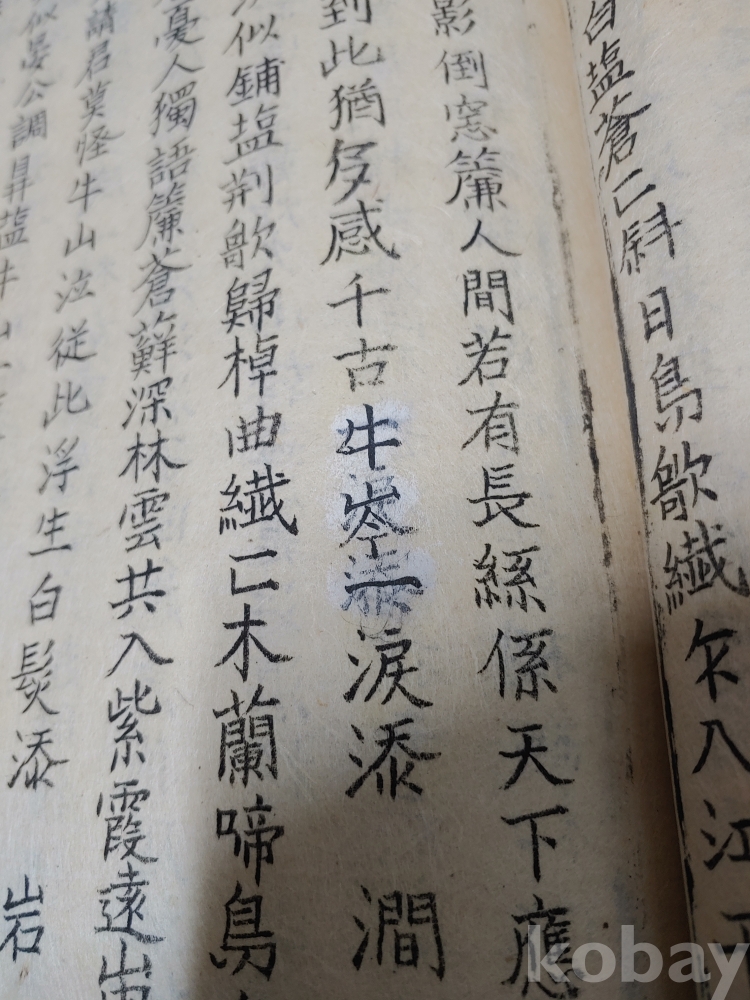 白塩蒼匸斜日鳥歇纎乍入江
影倒窓簾人間若有長絲係天下應
到此猶多感千古牛岑一淚添 澗
似鋪塩荆歇歸棹曲纎匸木蘭啼鳥
憂人獨語簾蒼蘚深林雲共入紫霞遠
請君莫怪牛山泣從此浮生白髮添 岩
似晏公調鼎塩牛
kobay